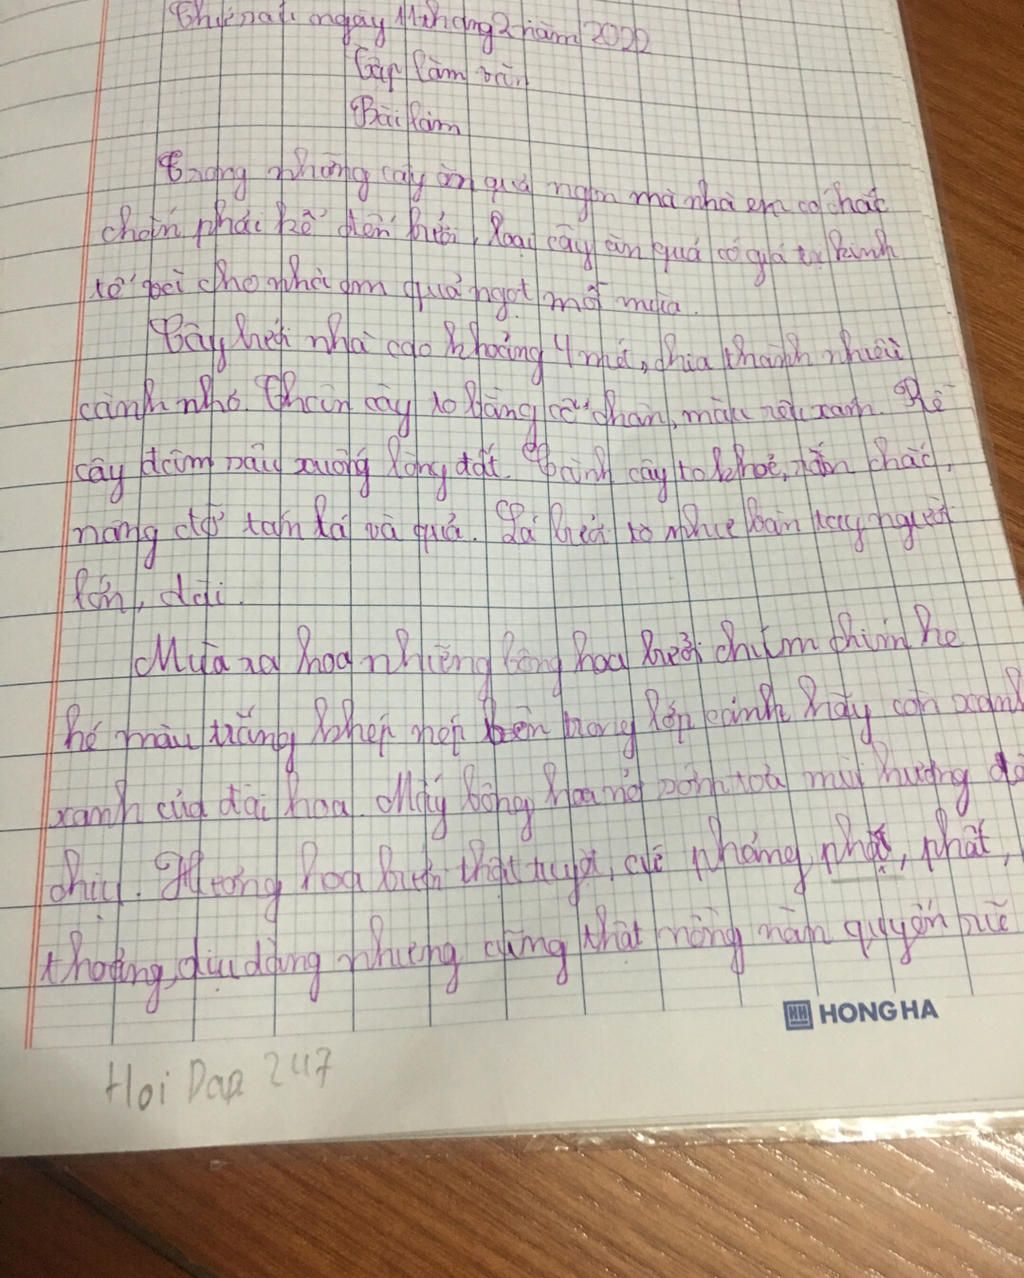 Thứ sáu ngày 11 tháng 2 năm 2022
Tập làm văn
Bài làm
Trong những cây ăn quả ngon mà nhà em có chắc
chắn phải kể đến bưởi, loại cây ăn quả có giá trị kinh
tế bởi cho nhà em quả ngọt mỗi mùa.
Cây bưởi nhà cao khoảng 4 mét, chia thành nhiều
cành nhỏ. Thân cây to bằng cổ chân, màu nâu xám. Rễ
cây đâm sâu xuống lòng đất. Cành cây to khoẻ, rắn chắc,
nâng đỡ tán lá và quả. Lá bưởi to như bàn tay người
lớn, dài.
Mùa ra hoa những bông hoa bưởi chúm chím he
hé màu trắng khép nép bên trong lớp cánh hãy còn xanh
xanh của đài hoa. Mấy bông hoa nở sớm toả mùi hương dễ
chịu. Hương hoa bưởi thật tuyệt, cứ phảng phất, phất,
thoảng, dịu dàng nhưng cũng thật nồng nàn quyến rũ
HONG HA
Hoi Dap 247